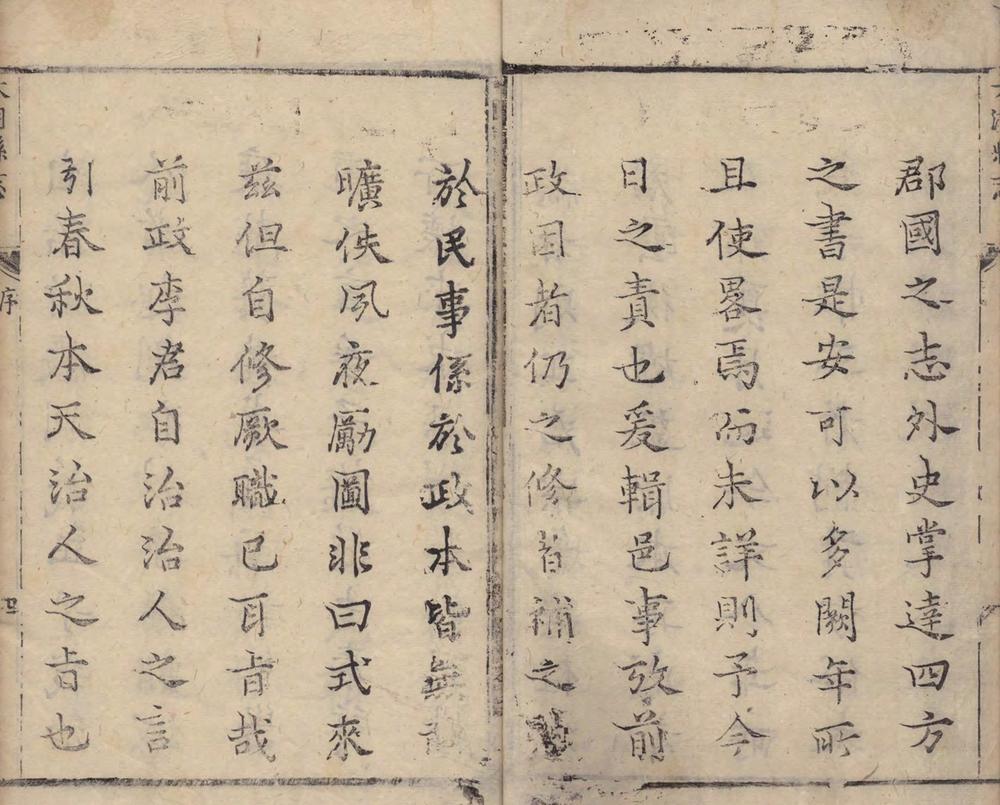 郡國之志外史掌達四方
之書是安可以多闕年所
且使畧焉而未詳則予今
日之責也爰輯邑事攷前
政因者仍之修者補之
於民事係於政本皆無
曠佚夙夜勵圖非曰式來
茲但自修厥職已耳旨哉
前政李君自治治人之言
引春秋本天治人之旨也
序